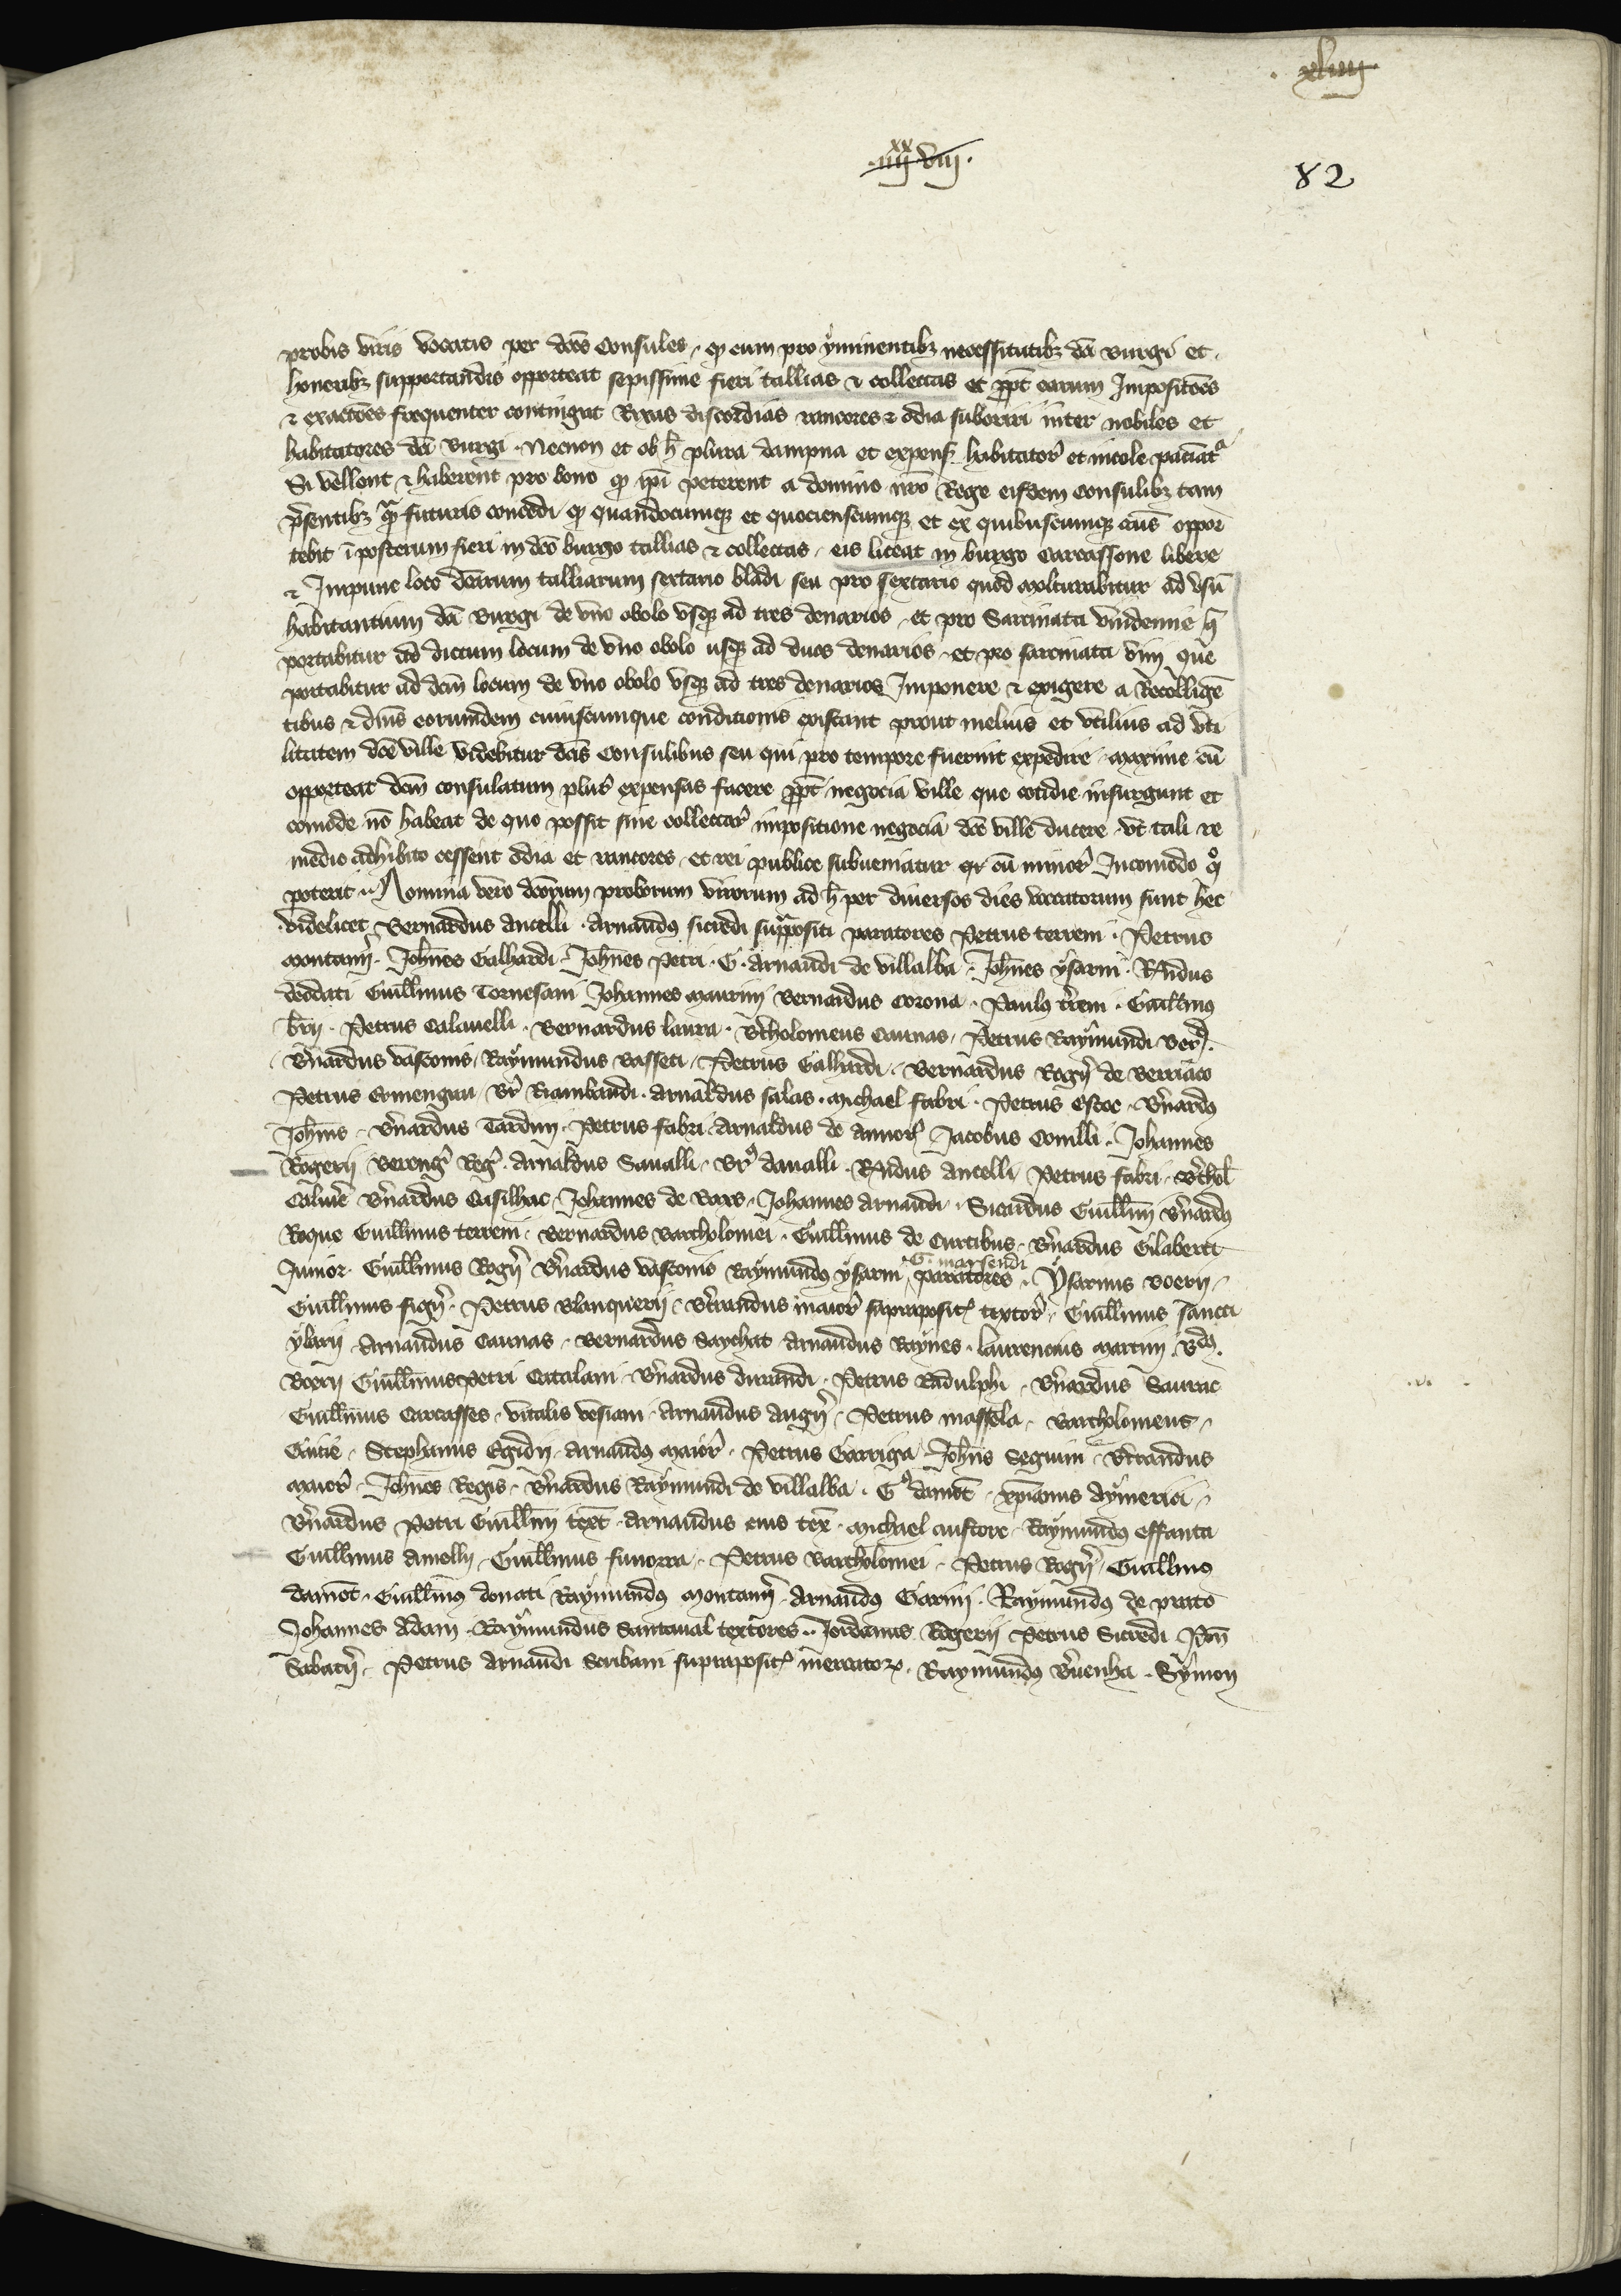 . xliiij.
.iiijxx viij.
82
probis viris vocatis per dcōs Consules . qz cum pro ẏminentibz necessitatibz dcī Burgi et
honeribz supportandis opporteat sepissime fieri tallias & collectas et ppt earum Imposicōēs
& exactōēs frequenter contingat Rixas discordias rancores & odia suboriri inter nobiles et
habitatores dcī Burgi . Necnon et ob h̄ plura dampna et expens habitatoř et incole paciātr
Si vellent & haberent pro bono qz ipī peterent a domino nrō Rege eisdem consulibz tam
p̄sentibz qz futuris concedi qz quandocumqz et quociescumqz et ex quibuscumqz cāus oppor
tebit ī posterum fieri in dcō burgo tallias & collectas . eis liceat in burgo Carcassone libere
& Impune loco dcārum talliarum sextario bladi seu pro sextario quod molturabitur ad vsū
habitantium dcī Burgi de vno obolo vsqz ad tres denarios . et pro Sarcinata vindemie q̄
portabitur ad dictum locum de vno obolo usqz ad duos denarios . et pro sarcinata vini que
portabitur ad dcm̄ locum de vno obolo vsqz ad tres denarios Imponere & exigere a Recolligē
tibus & dnīs eorumdem cuiuscumque conditionis existant prout melius et vtilius ad vti
litatem dcē ville videbitur dcīs Consulibus seu qui pro tempore fuerint expedire . maxime cū
opporteat dcm̄ consulatum plurˀ expensas facere ppt negocia ville que cotidie insurgunt et
comode nō habeat de quo possit sine collectarˀ impositione negocia dcē ville ducere . vt tali re
medio adhibito cessent odia et rancores . et rei publice subueniatur cū minorˀ Incomodo qº
poterit .. Nomina vero dcōrum proborum virorum ad h̄ per diuersos dies vocatorum sunt hec
videlicet Bernardus Ancelli . Arnaudꝰ sicredi supraposti paratores Petrus terreni . Petrus
Montanˀ . Johēs Galhardi . Johēs Petri . G . Arnaudi de villalba . Johēs ẏsarni . Rāndus
deodati Guillmus Tornesani Johannes Maurini Bernardus Corona . Paulꝰ tˀreni . Guillmꝰ
brij . Petrus Calauelli . Bernardus laura . Bˀtholomeus Caunas . Petrus Raẏmundi
Bˀnardus vasconis . Raẏmundus Basseti . Petrus Galhardi . Bernardus Rogˀ de Berriaco
Petrus Ermengau . Brˀ Riambaudi . Arnaldus salas . Michael fabri . Petrus Escoc . Bˀnardꝰ
Johīs . Bˀnardus Tardini . Petrus fabri . Arnaldus de Auuorˀ Jacobus Conilli . Johannes
Rogerij Berengˀ Regˀ . Arnaldus Saualli . Brˀ daualli . Rāndus Ancelli Petrus fabri . Bˀthol
Bˀnardus Casilhac . Johannes de Roax . Johannes Arnaudi . Sicardus Guillmī Bˀnardꝰ
Roque Guillmus terreni . Bernardus Bartholomei . Guillmus de Curtibus . Bˀnardus Gilaberti
Junior . Guillmus Rogˀ Bˀnardus vasconis Raẏmundꝰ ẏsarni G. marsendi paratores . ẏsarnus Boerij .
Guillmus figˀ . Petrus Blanquerij . Bˀtrandus maiorˀ suprapositˀ textorˀ . Guillmus sancti
ẏlarij Arnaudus Caunas . Bernardus Saẏchat Arnaudus Raẏnes . laurencius martini . Bdꝰ.
Boerij Guillmus Petri Catalani . Bˀnardus durandi . Petrus Radulphi . Bˀnardus Saurac
Guillmus Carcasses . vitalis vesiani . Arnaudus Augˀ . Petrus massola . Bartholomeus .
Gaure . Stephanus Egidij . Arnaudꝰ Maiorˀ . Petrus Garriga Johīs Seguini . Bˀtrandus
Maiorˀ . Johēs Regis . Bˀnardus Raẏmundi de villalba . Gˀ damōt . xpianus Aẏmerici .
Bˀnardus Petri Guillmī text . Arnaudus eius tex . Michael custore . Raẏmundꝰ effanta
Guillmus Amelij . Guillmus funorra . Petrus Bartholomei . Petrus Rogˀ . Guillmꝰ
damōt . Guillmꝰ donati Raẏmundꝰ Montanˀ . Arnaudꝰ Garini . Raẏmundꝰ de prato
Johannes Adam . Raẏmundus Santaual textores .. Jordanus Rogerij Petrus Sicredi
Sabaterˀ . Petrus Arnaudi Scribani suprapositˀ mercatorꝝ . Raẏmundꝰ Bˀuenha . Sẏmon